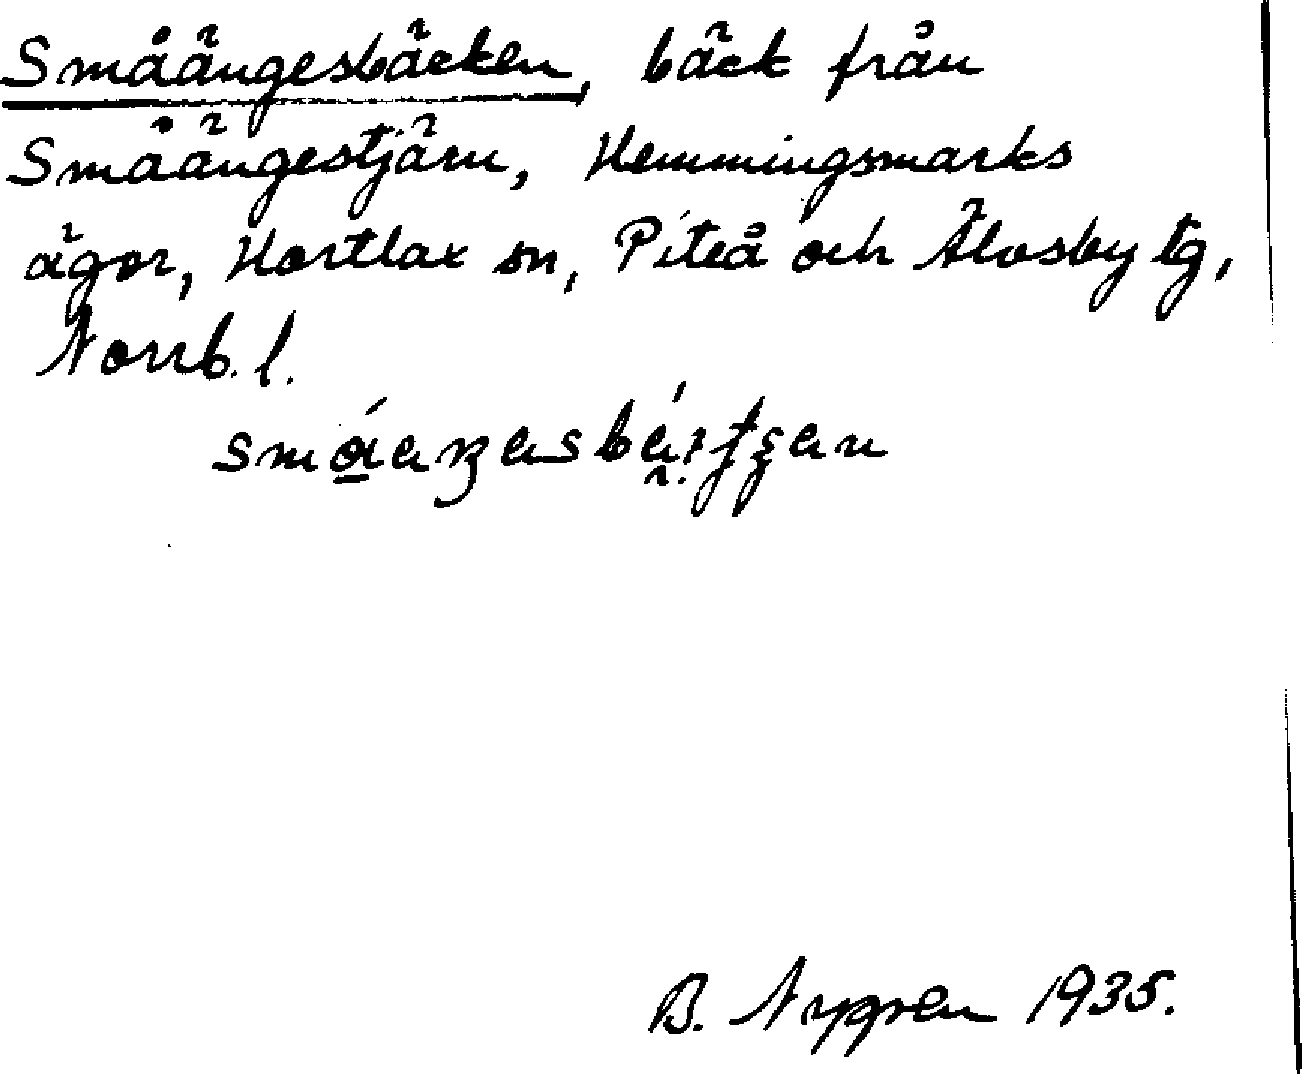 Småängesbäcken, bäck från
Småängestjärn, Hemmingsmarks
ägor, Hortlax sn, Piteå och Älvsby tg,
Norrb. l.
B. Nygren 1935.